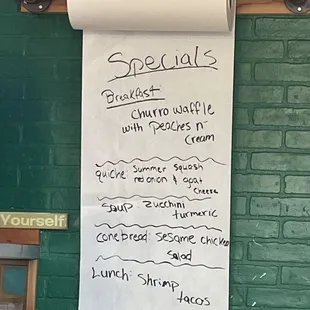 Specials
Breakfast
Churro waffle
with Peaches n
Cream
quiche: Summer Squash
red onion & goat
cheese
Soup: Zucchini
turmeric
Conebread: Sesame chicken
Salad
Lunch: Shrimp
tacos
Yourself